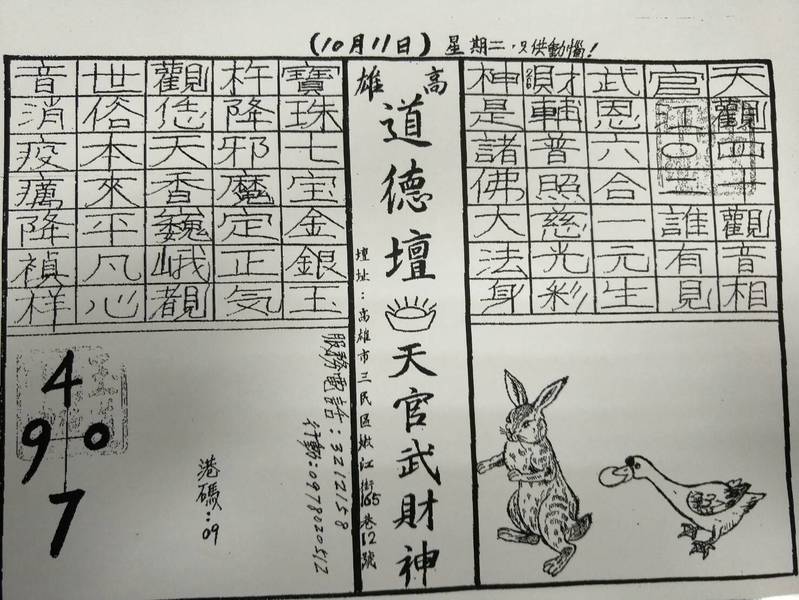 (10月11日) 星期二,只供動惱!
天觀四十觀音相
官江○二誰有見
武恩六合一元生
財輔普照慈光彩
神是諸佛大法身
高雄
道德壇
天官武財神
壇址:高雄市三民區嫩江街165巷12號
寶珠七宝金銀玉
杵降邪魔定正気
觀恁天香巍峨觀
世俗本來平凡心
音消疫癘降禎祥
服務電話:3212158
行動:0978020512
港碼:09
4
9 0
7